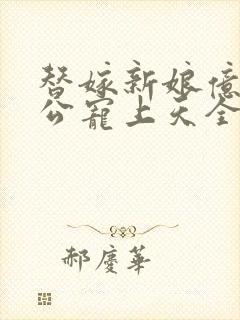 替嫁新娘億
公寵上天全
郝慶華